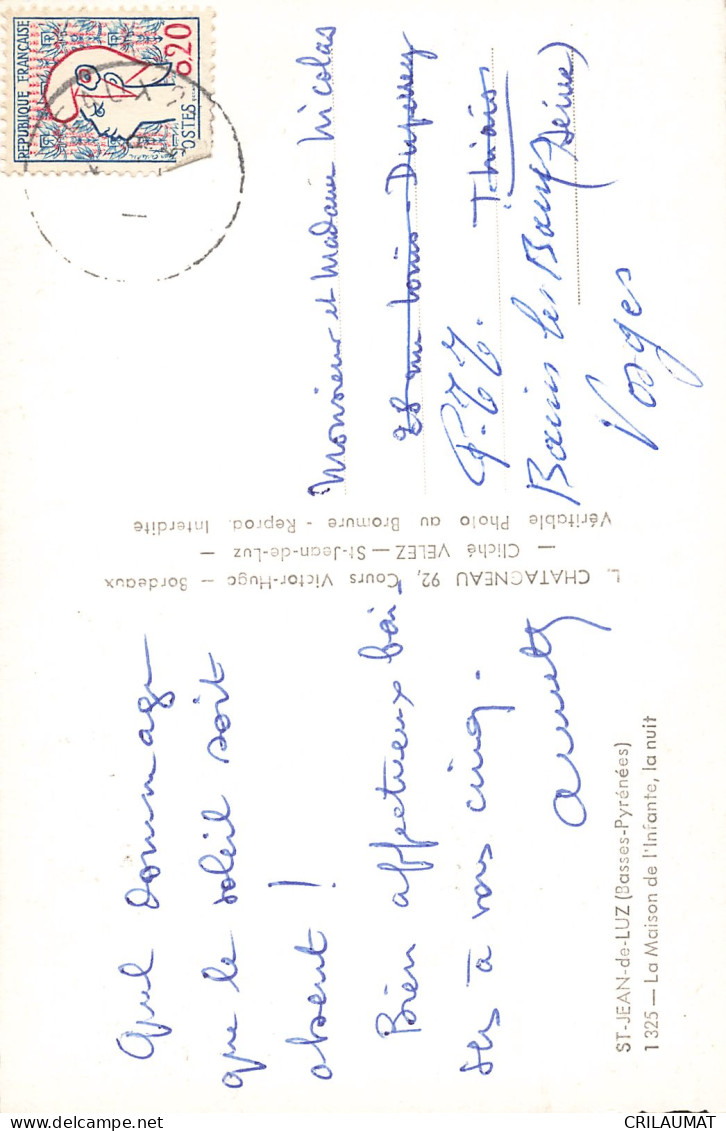 Quel dommage
que le soleil soit
absent !
Bien affectueux bai-
sers à vous cinq.
ST-JEAN-de-LUZ (Basses-Pyrénées)
1 325 — La Maison de l'Infante, la nuit
L. CHATAGNEAU 92, Cours Victor-Hugo — Bordeaux
— Cliché VELEZ — St-Jean-de-Luz —
Véritable Photo au Bromure - Reprod. Interdite
REPUBLIQUE FRANÇAISE
0,20
POSTES
Monsieur et Madame Nicolas
28 rue Louis Duperrey
Thiais
P.T.T.
(Seine)
Bains les Bains
Vosges
CRILAUMAT